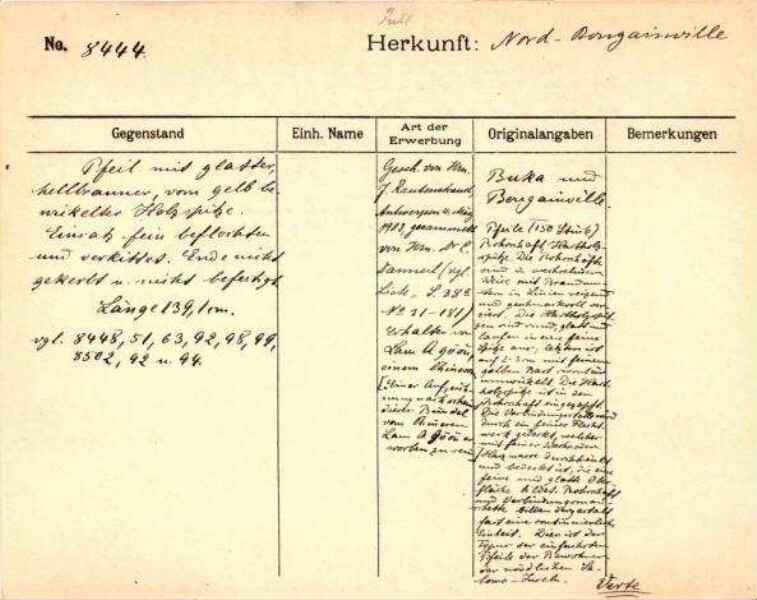 No. 8444
Herkunft: Nord-Bougainville
Gegenstand
Einh. Name
Art der Erwerbung
Originalangaben
Bemerkungen
Pfeil mit glatter,
hellbrauner, vorn gelb be-
wikelter Holzspitze.
Einsatz fein beflochten
und verkittet. Ende nicht
gekerbt u. nicht befertigt.
Länge 139,1 cm.
vgl. 8448, 51, 63, 92, 98, 99,
8502, 92 u. 94.
Gesch. von Hrn.
J.
Antwerpen
1903, gesammelt
von Hrn. Dr C.
(vgl.
S. 38
No 21-181)
Erhalten von
Lam A göön,
einem Chinesen
dieser Bündel
vom Chinesen
Lam A Göön er-
worben zu sein
Buka und
Bougainville.
Pfeile (150 Stück)
Rohrschaft, Hartholz-
spitze. Die Rohrschäfte
sind in
Weise mit Brandmu-
stern in Linien
und geschmackvoll ver-
ziert. Die Hartholzspit-
zen sind rund, glatt und
laufen in eine feine
Spitze aus, letztere ist
auf 2-3 cm mit feinem
gelben Bast
umwickelt. Die Hart-
holzspitze ist in den
Rohrschaft eingezapft.
Die Verbindungsstelle wird
durch ein feines Flecht-
werk gedeckt, welches
mit feiner
Harzmasse
und bedeckt ist, die eine
feine und glatte Ober-
fläche bildet. Rohrschaft
und
bilden dergestalt
fast eine continuierliche
Einheit. Dies ist der
Typus der einfachsten
Pfeile der Bewohner
der nördlichen Sa-
lomo-Inseln.
Verte